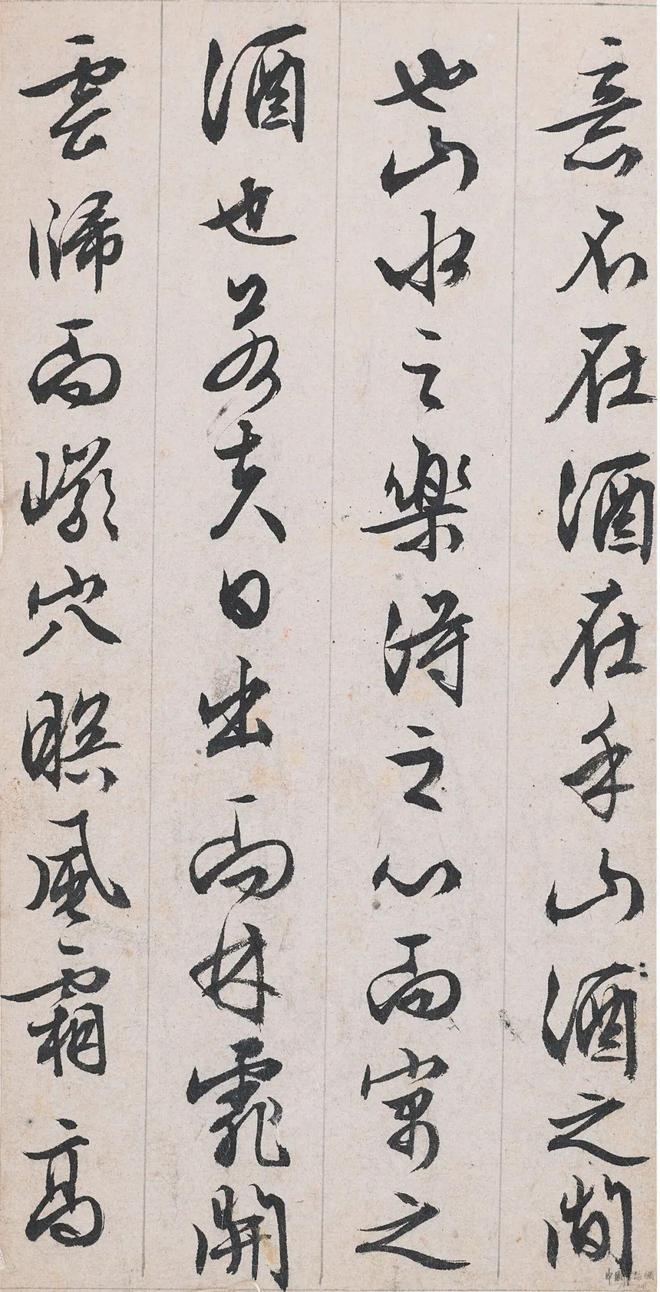 意不在酒在乎山酒之間
也山水之樂得之心而寓之
酒也若夫日出而林霏開
雲歸而巖穴暝風霜高